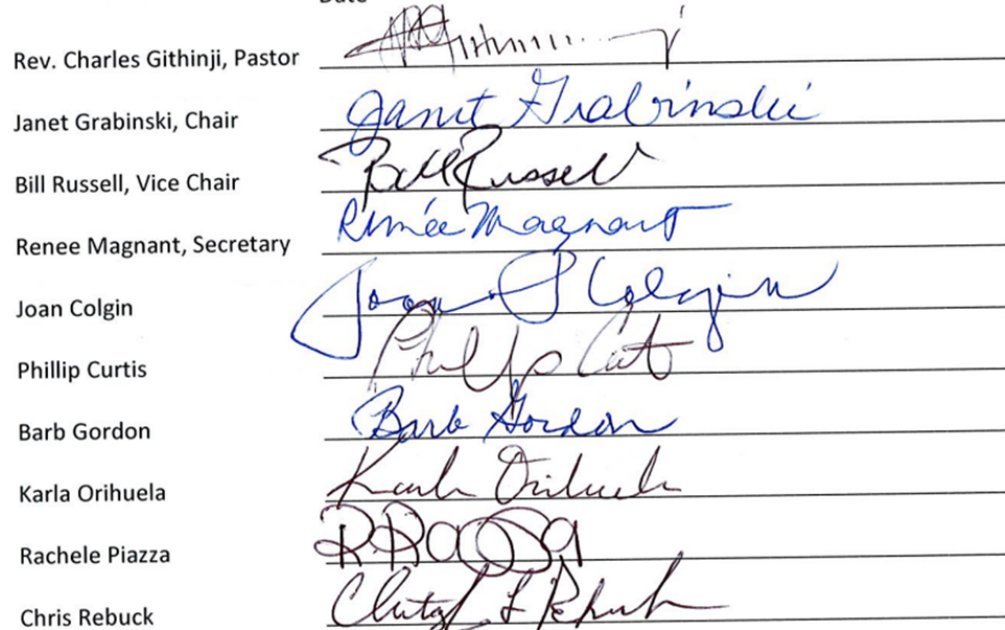 Date
Rev. Charles Githinji, Pastor
Janet Grabinski, Chair Janet Grabinski
Bill Russell, Vice Chair Bill Russell
Renee Magnant, Secretary Renée Magnant
Joan Colgin Joan S Colgin
Phillip Curtis Phillip
Barb Gordon Barb Gordon
Karla Orihuela Karla Orihuela
Rachele Piazza
Chris Rebuck